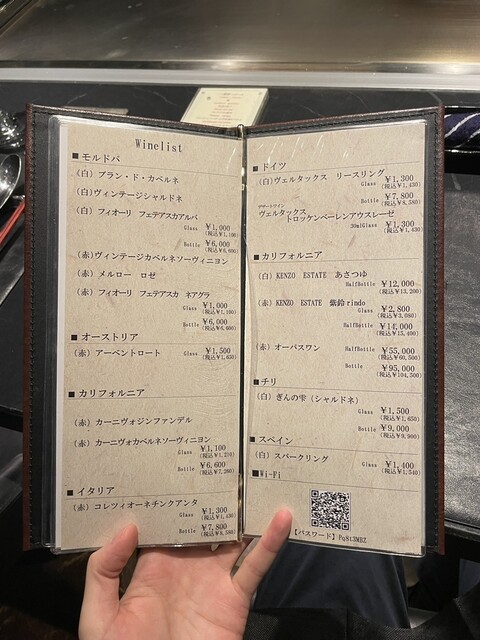 Winelist
■ モルドバ
(白) ブラン・ド・カベルネ
(白)ヴィンテージシャルドネ
(白) フィオーリ フェテアスカアルバ
Glass ￥1,000
(税込￥1,100)
Bottle ￥6,000
(税込￥6,600)
(赤)ヴィンテージカベルネソーヴィニヨン
(赤) メルロー ロゼ
(赤) フィオーリ フェテアスカ ネアグラ
Glass ￥1,000
(税込￥1,100)
Bottle ￥6,000
(税込￥6,600)
■ オーストリア
(赤) アーベントロート Glass ￥1,500
(税込￥1,650)
■ カリフォルニア
(赤) カーニヴォジンファンデル
(赤) カーニヴォカベルネソーヴィニヨン
Glass ￥1,100
(税込￥1,210)
Bottle ￥6,600
(税込￥7,260)
■ イタリア
(赤) コレツィオーネチンクアンタ
Glass ￥1,300
(税込￥1,430)
Bottle ￥7,800
(税込￥8,580)
■ ドイツ
(白)ヴェルタックス リースリング
Glass ￥1,300
(税込￥1,430)
Bottle ￥7,800
(税込￥8,580)
デザートワイン
ヴェルタックス
トロッケンベーレンアウスレーゼ
30mlGlass ￥1,300
(税込￥1,430)
■ カリフォルニア
(白) KENZO ESTATE あさつゆ
HalfBottle ￥12,000
(税込￥13,200)
(赤) KENZO ESTATE 紫鈴rindo
Glass ￥2,800
(税込￥3,080)
HalfBottle ￥14,000
(税込￥15,400)
(赤) オーパスワン HalfBottle ￥55,000
(税込￥60,500)
Bottle ￥95,000
(税込￥104,500)
■ チリ
(白) ぎんの雫 (シャルドネ)
Glass ￥1,500
(税込￥1,650)
Bottle ￥9,000
(税込￥9,900)
■ スペイン
(白) スパークリング
Glass ￥1,400
(税込￥1,540)
■Wi-Fi
【パスワード】Pq8t3MBZ